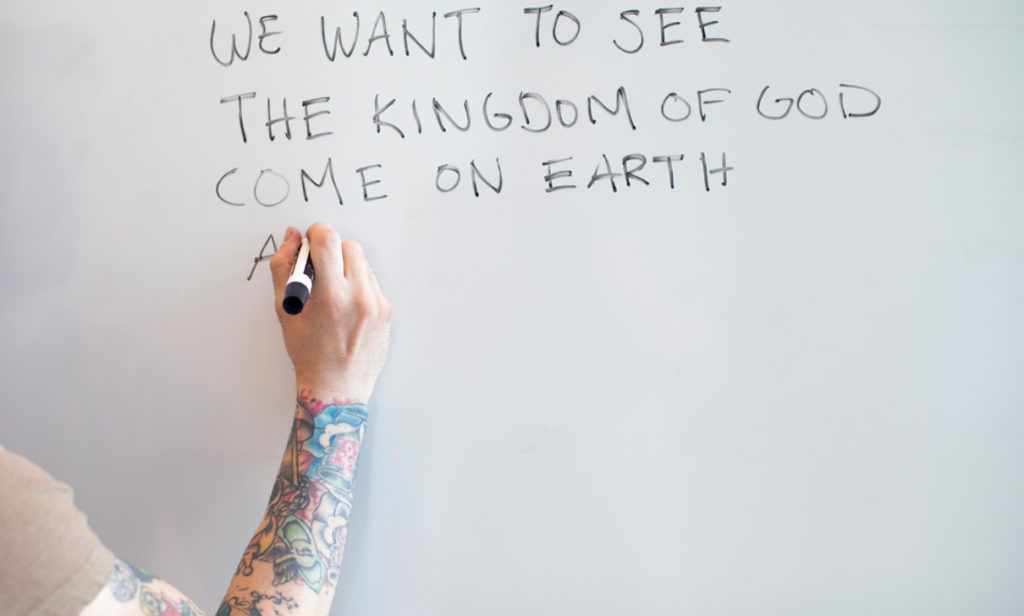 WE WANT TO SEE
THE KINGDOM OF GOD
COME ON EARTH